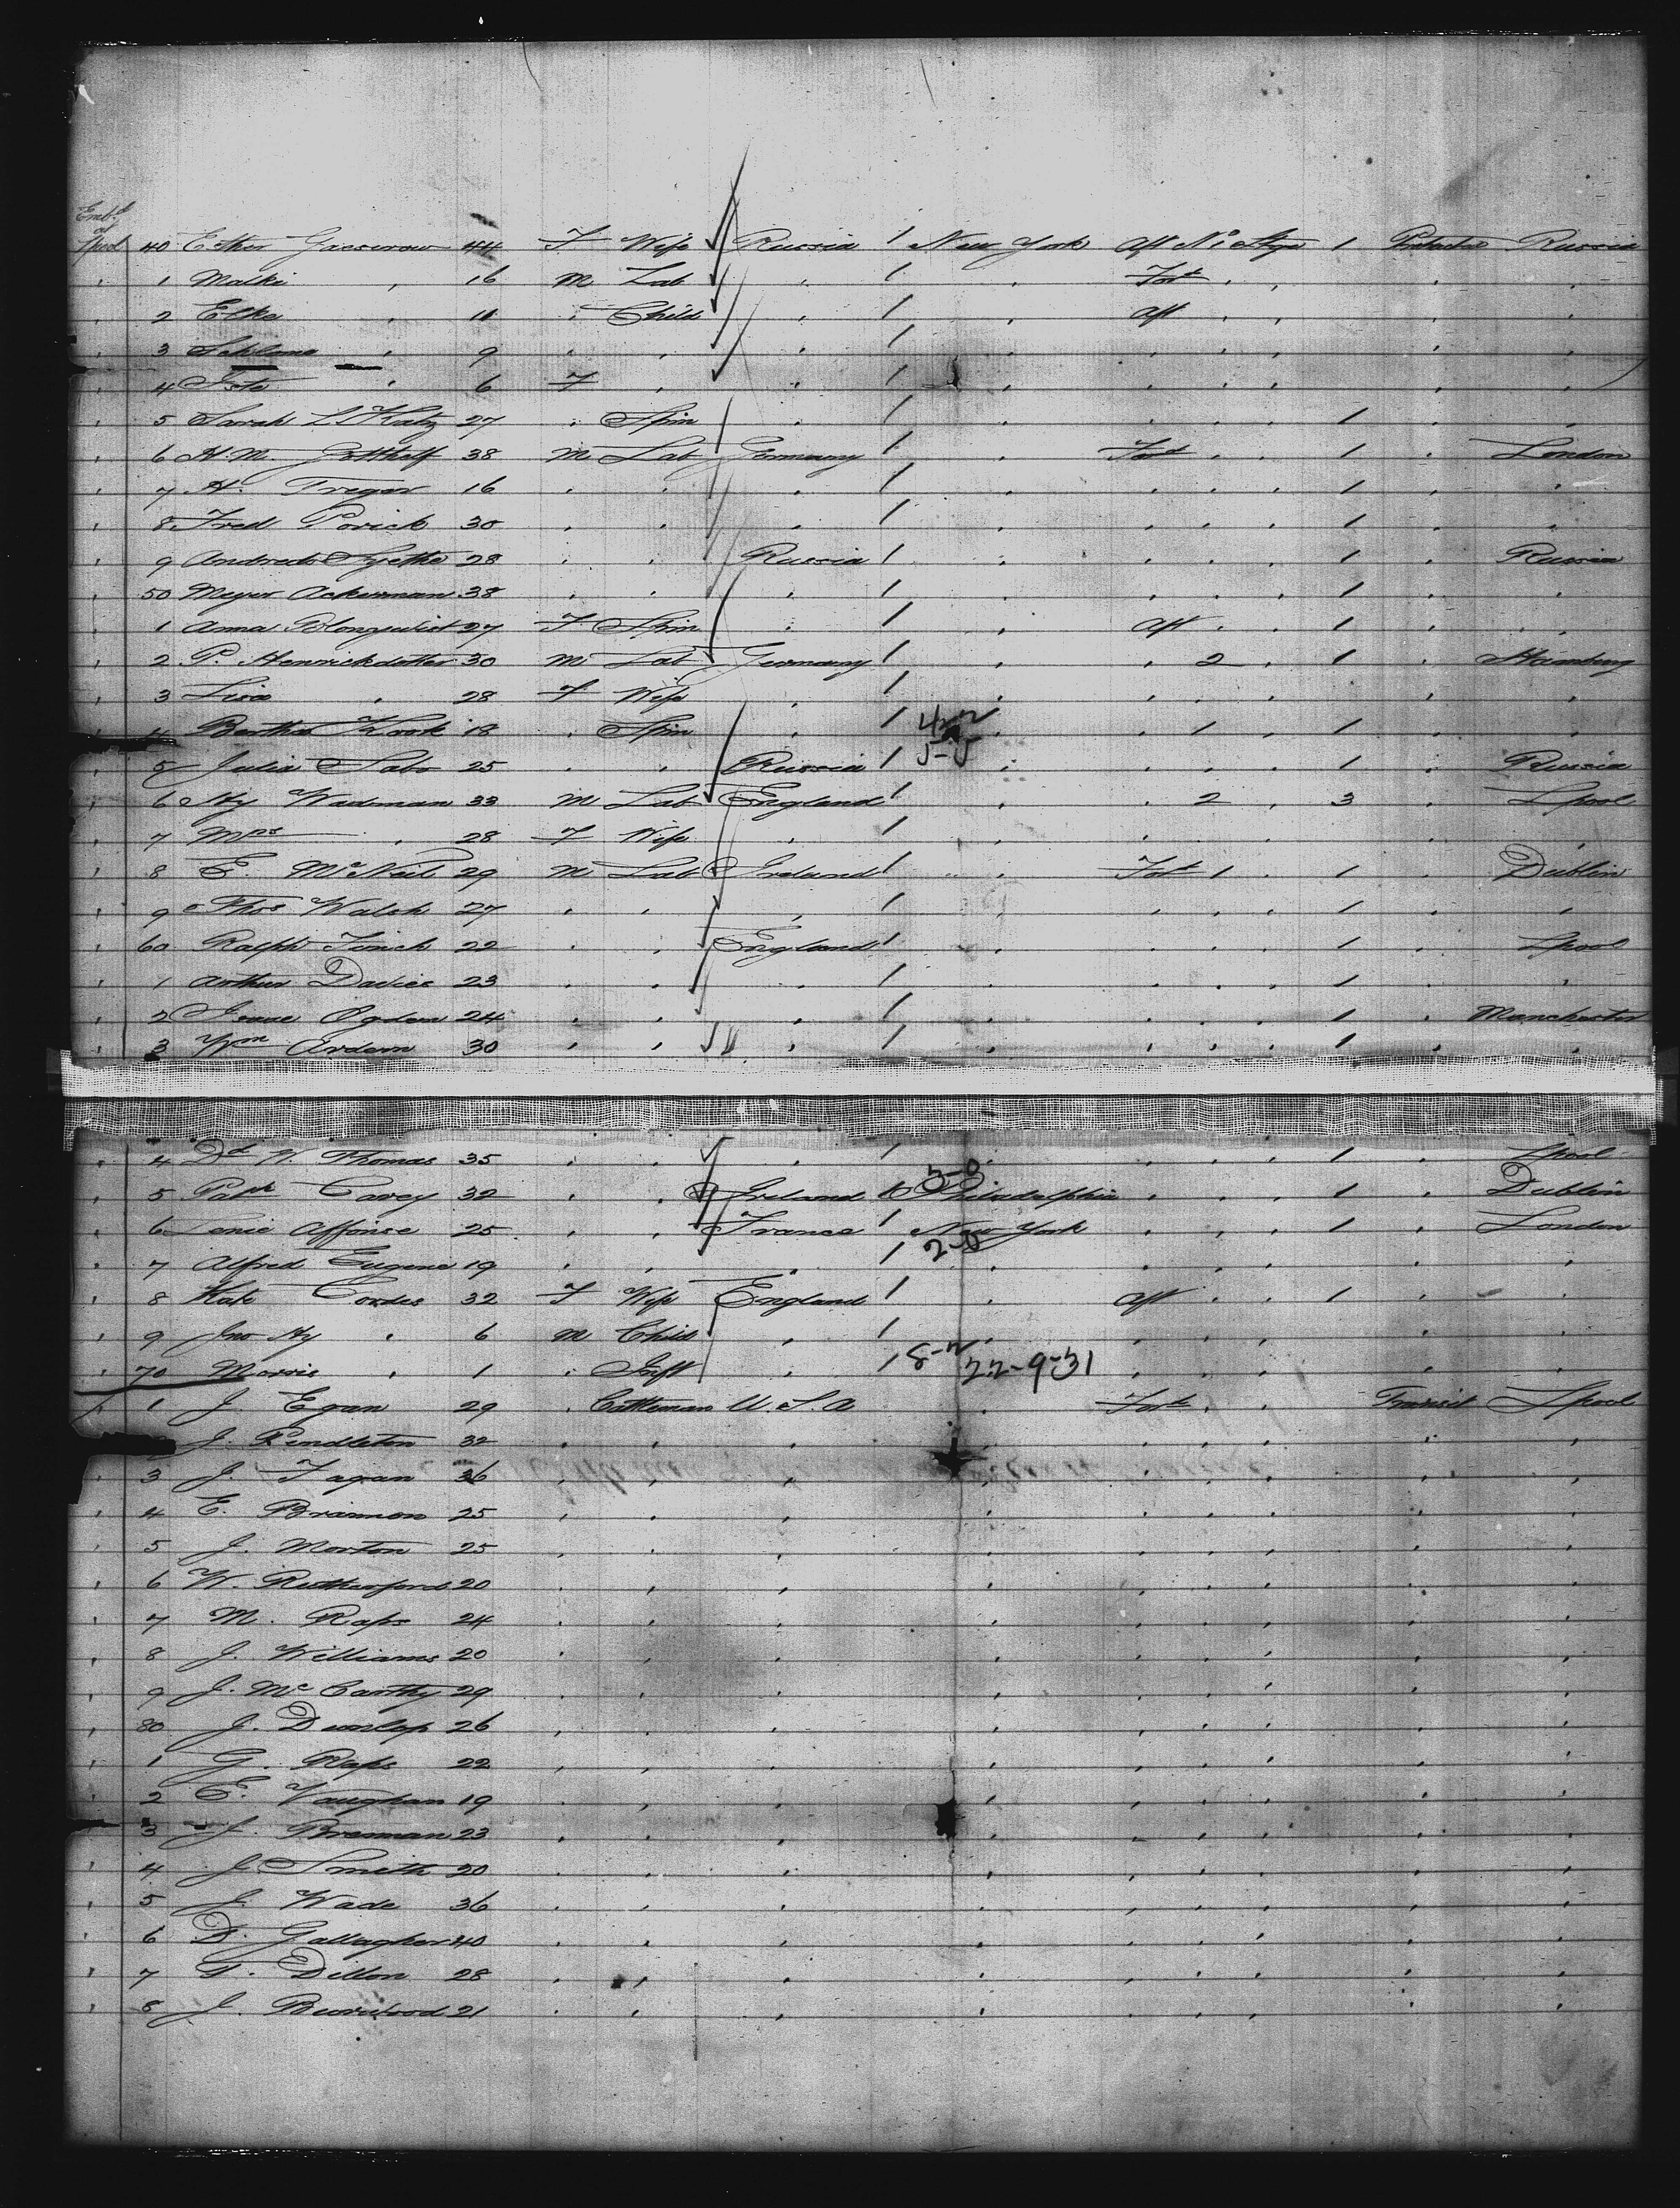 Emb.d
at
Lpool 40 Esther 44 F Wife Russia 1 New York Aft No 1 Stge 1 Protracted Russia
1 Malki , 16 M Lab , 1 , Fort , , , ,
2 Elka , 11 , Child , 1 , Aft , , , ,
3 Schlome , 9 , , , 1 , , , , , ,
4 , 6 F , , 1 , , , , , ,
5 Sarah L Katz 27 , Spin , 1 , , , , 1 , ,
6 H. M. Gotthelf 38 M Lab Germany 1 , Fort , , 1 , London
7 H. Treger 16 , , , 1 , , , , 1 , ,
8 Fred Porick 30 , , , 1 , , , , 1 , ,
9 Andreds 28 , , Russia 1 , , , , 1 , Russia
50 Meyer Ackerman 38 , , , 1 , , , , 1 , ,
1 Anna Blonquist 27 F Spin , 1 , Aft , , 1 , ,
2 P. Henrickdotter 30 M Lab Germany 1 , , 2 , 1 , Hamburg
3 Lisa , 28 F Wife , 1 , , , , , ,
4 Bertha Kook 18 , Spin , 1 4-2 , , 1 , 1 , ,
5 Julia Sabo 25 , , Russia 1 5-5 , , , , 1 , Russia
6 Hy Wademan 33 M Lab England 1 , , 2 , 3 , Lpool
7 Mrs , 28 F Wife , 1 , , , , , ,
8 E. McNeil 29 M Lab Ireland 1 , Fort 1 , 1 , Dublin
9 Thos Walsh 27 , , , 1 , , , , 1 , ,
60 Ralph Finch 22 , , England 1 , , , , 1 , Lpool
1 Arthur Davies 23 , , , 1 , , , , 1 , ,
2 Isaac Ogden 24 , , , 1 , , , , 1 , Manchester
3 Wm Ardern 30 , , , 1 , , , , 1 , ,
4 Dd W. Thomas 35 , , , 1 , , , , 1 , Lpool
5 Patk Carey 32 , , Ireland 3-0 Philadelphia , , , 1 , Dublin
6 Affonse 25 , , France 1 New York , , , 1 , London
7 Alfred Eugene 19 , , , 1 2-0 , , , , , ,
8 Kate Cordes 32 F Wife England 1 , Aft , , 1 , ,
9 Jno Hy , 6 M Child , 1 , , , , , ,
70 Morris , 1 , Inft , 1 8-2 22-9-31 , , , , ,
1 J. Egan 29 , Cattleman U.S.A , Fort , , Transit Lpool
J. Pendleton 32 , , , , , , , , ,
3 J. Fagan 36 , , , , , , , , ,
4 E. Brannon 25 , , , , , , , , ,
5 J. Morton 25 , , , , , , , , ,
6 W. Rutherford 20 , , , , , , , , ,
7 M. Raps 24 , , , , , , , , ,
8 J. Williams 20 , , , , , , , , ,
9 J. McCarthy 29 , , , , , , , , ,
80 J. Dunlop 26 , , , , , , , , ,
1 G. Raps 22 , , , , , , , , ,
2 E. Vaughan 19 , , , , , , , , ,
3 J. Brennan 23 , , , , , , , , ,
4 J. Smith 20 , , , , , , , , ,
5 J. Wade 36 , , , , , , , , ,
6 D. Gallagher 40 , , , , , , , , ,
7 T. Dillon 28 , , , , , , , , ,
8 J. 21 , , , , , , , , ,